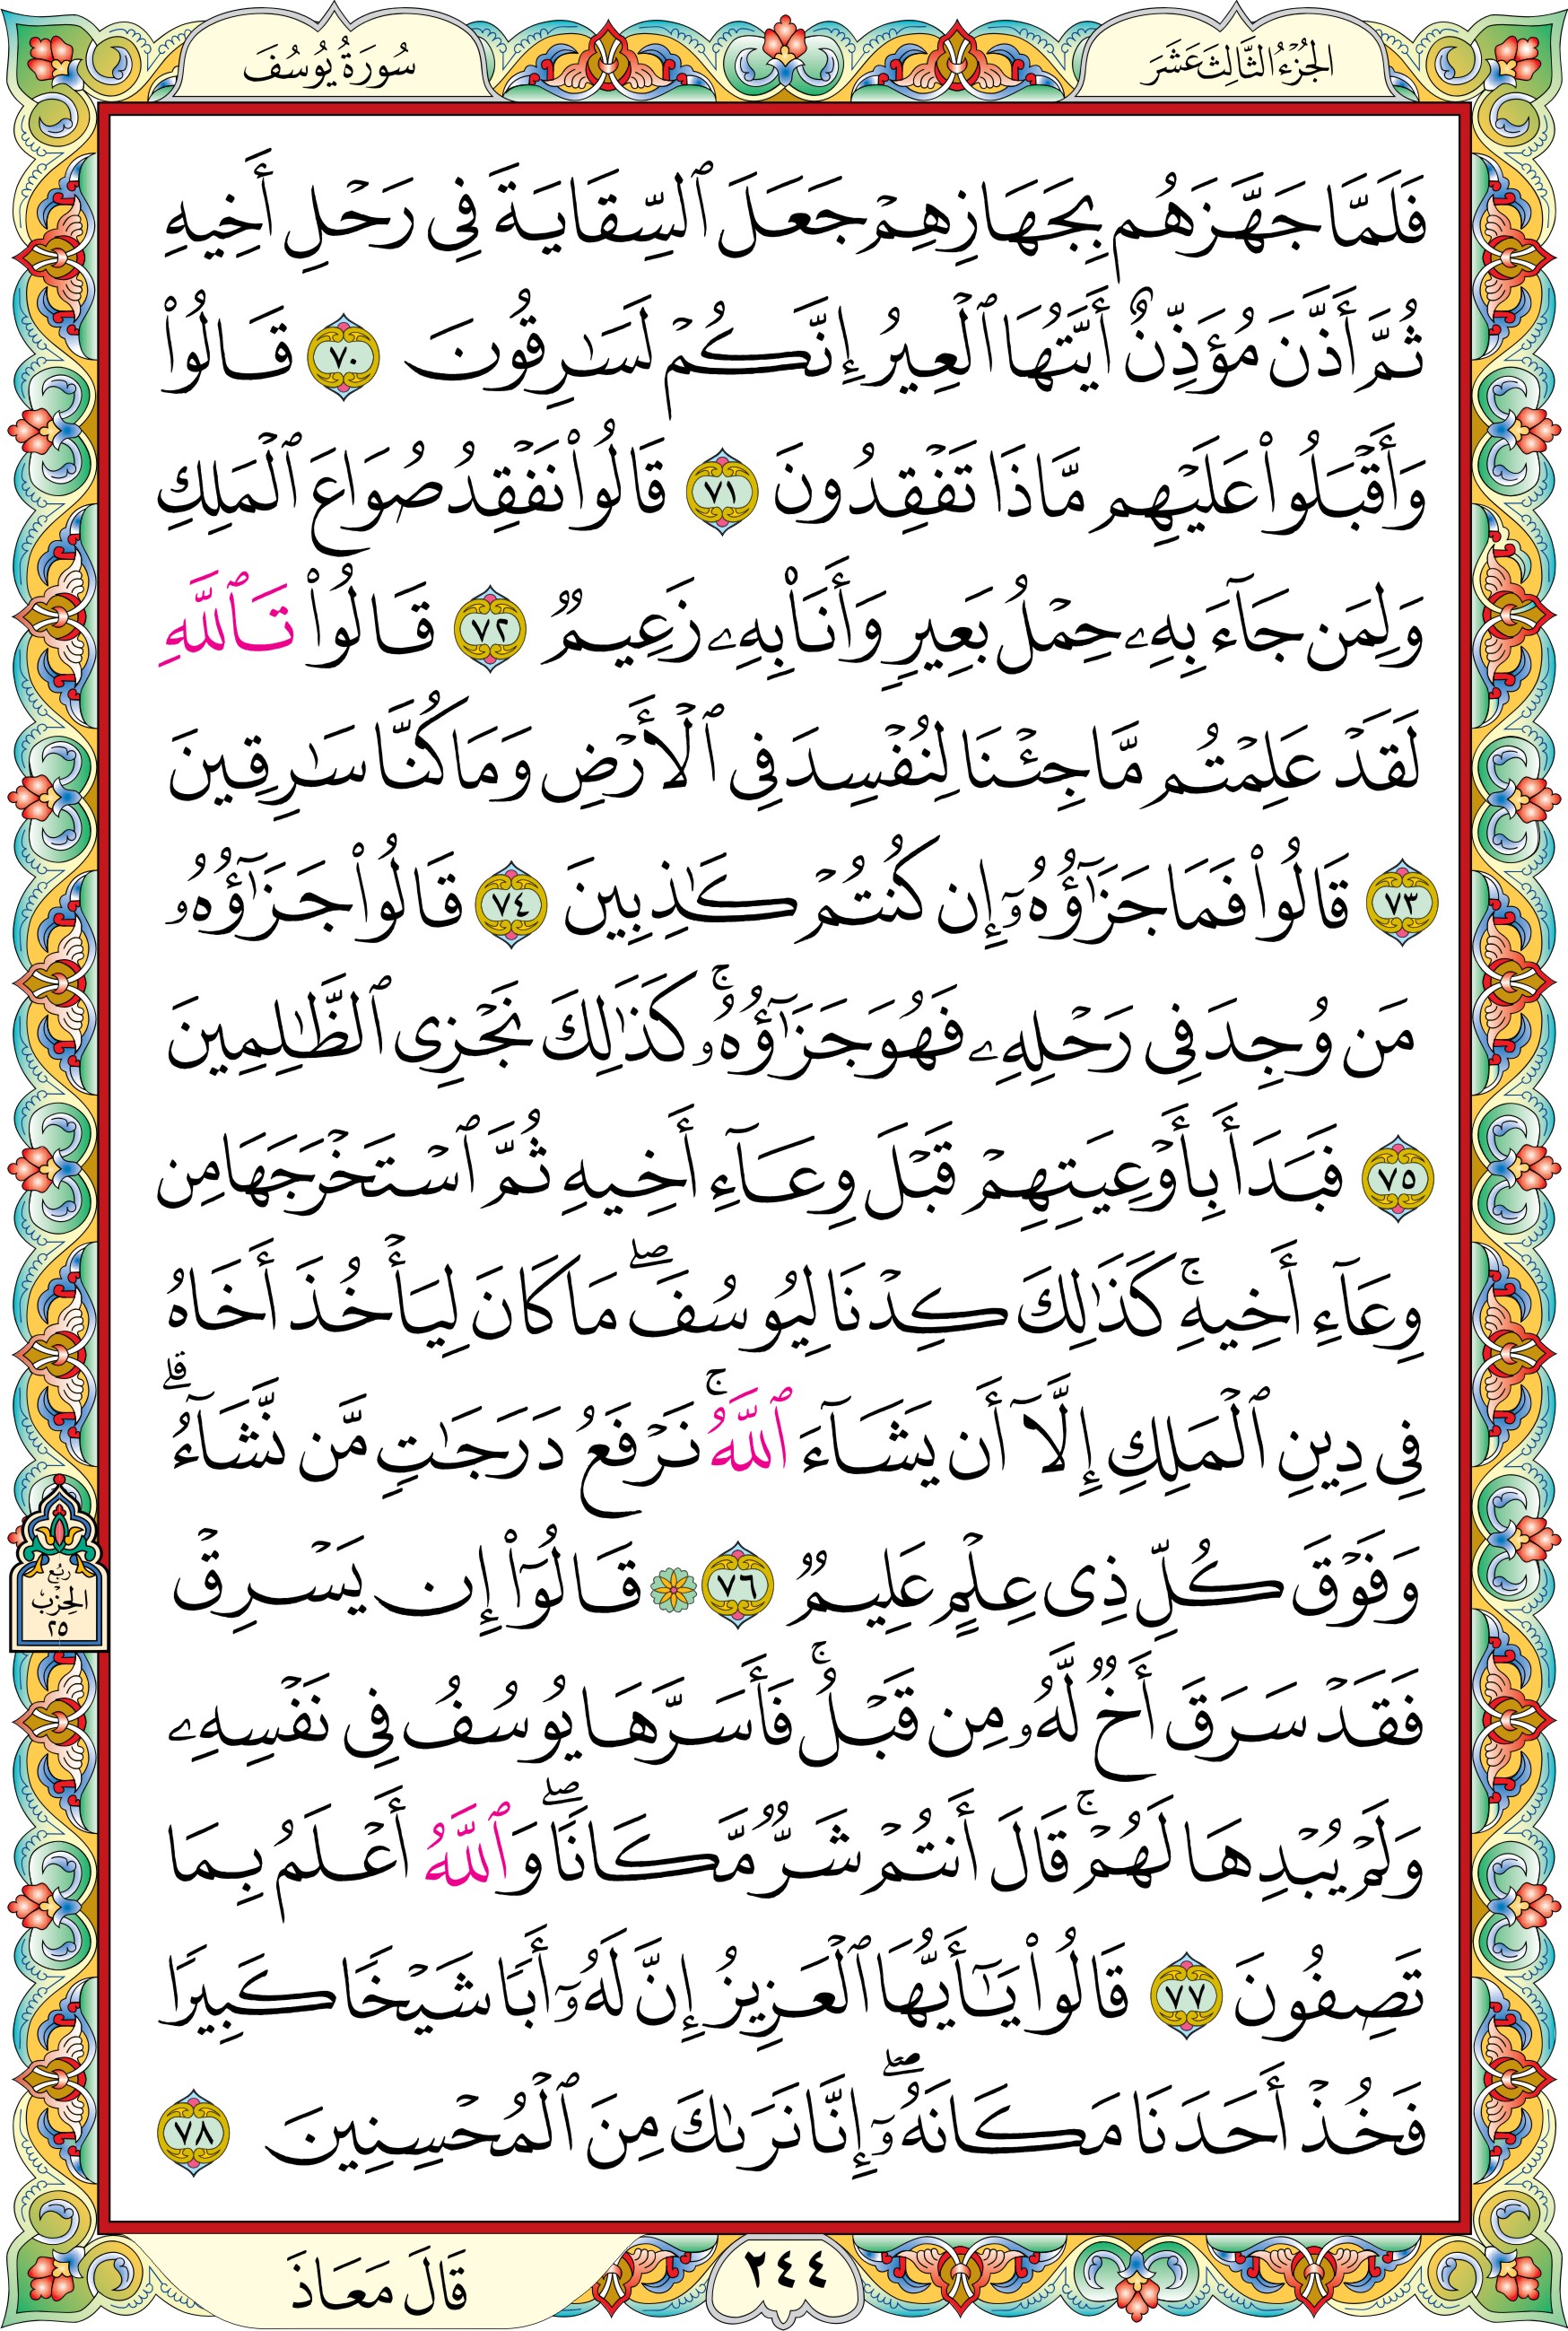 الجُزْءُ الثَّالِثَ عَشَرَ
سُورَةُ يُوسُفَ
فَلَمَّا جَهَّزَهُم بِجَهَازِهِمۡ جَعَلَ ٱلسِّقَايَةَ فِى رَحۡلِ أَخِيهِ
ثُمَّ أَذَّنَ مُؤَذِّنٌ أَيَّتُهَا ٱلۡعِيرُ إِنَّكُمۡ لَسَٰرِقُونَ ٧٠ قَالُوا۟
وَأَقۡبَلُوا۟ عَلَيۡهِم مَّاذَا تَفۡقِدُونَ ٧١ قَالُوا۟ نَفۡقِدُ صُوَاعَ ٱلۡمَلِكِ
وَلِمَن جَآءَ بِهِۦ حِمۡلُ بَعِيرٍ وَأَنَا۠ بِهِۦ زَعِيمٌ ٧٢ قَالُوا۟ تَٱللَّهِ
لَقَدۡ عَلِمۡتُم مَّا جِئۡنَا لِنُفۡسِدَ فِى ٱلۡأَرۡضِ وَمَا كُنَّا سَٰرِقِينَ
٧٣ قَالُوا۟ فَمَا جَزَٰٓؤُهُۥٓ إِن كُنتُمۡ كَٰذِبِينَ ٧٤ قَالُوا۟ جَزَٰٓؤُهُۥ
مَن وُجِدَ فِى رَحۡلِهِۦ فَهُوَ جَزَٰٓؤُهُۥۚ كَذَٰلِكَ نَجۡزِى ٱلظَّٰلِمِينَ
٧٥ فَبَدَأَ بِأَوۡعِيَتِهِمۡ قَبۡلَ وِعَآءِ أَخِيهِ ثُمَّ ٱسۡتَخۡرَجَهَا مِن
وِعَآءِ أَخِيهِۚ كَذَٰلِكَ كِدۡنَا لِيُوسُفَۖ مَا كَانَ لِيَأۡخُذَ أَخَاهُ
فِى دِينِ ٱلۡمَلِكِ إِلَّآ أَن يَشَآءَ ٱللَّهُۚ نَرۡفَعُ دَرَجَٰتٍ مَّن نَّشَآءُۗ
وَفَوۡقَ كُلِّ ذِى عِلۡمٍ عَلِيمٌ ٧٦ ۞ قَالُوٓا۟ إِن يَسۡرِقۡ
فَقَدۡ سَرَقَ أَخٌ لَّهُۥ مِن قَبۡلُۚ فَأَسَرَّهَا يُوسُفُ فِى نَفۡسِهِۦ
وَلَمۡ يُبۡدِهَا لَهُمۡۚ قَالَ أَنتُمۡ شَرٌّ مَّكَانًاۖ وَٱللَّهُ أَعۡلَمُ بِمَا
تَصِفُونَ ٧٧ قَالُوا۟ يَٰٓأَيُّهَا ٱلۡعَزِيزُ إِنَّ لَهُۥٓ أَبًا شَيۡخًا كَبِيرًا
فَخُذۡ أَحَدَنَا مَكَانَهُۥٓۖ إِنَّا نَرَىٰكَ مِنَ ٱلۡمُحۡسِنِينَ ٧٨
رُبع
الحِزْب
٢٥
٢٤٤
قَالَ مَعَاذَ